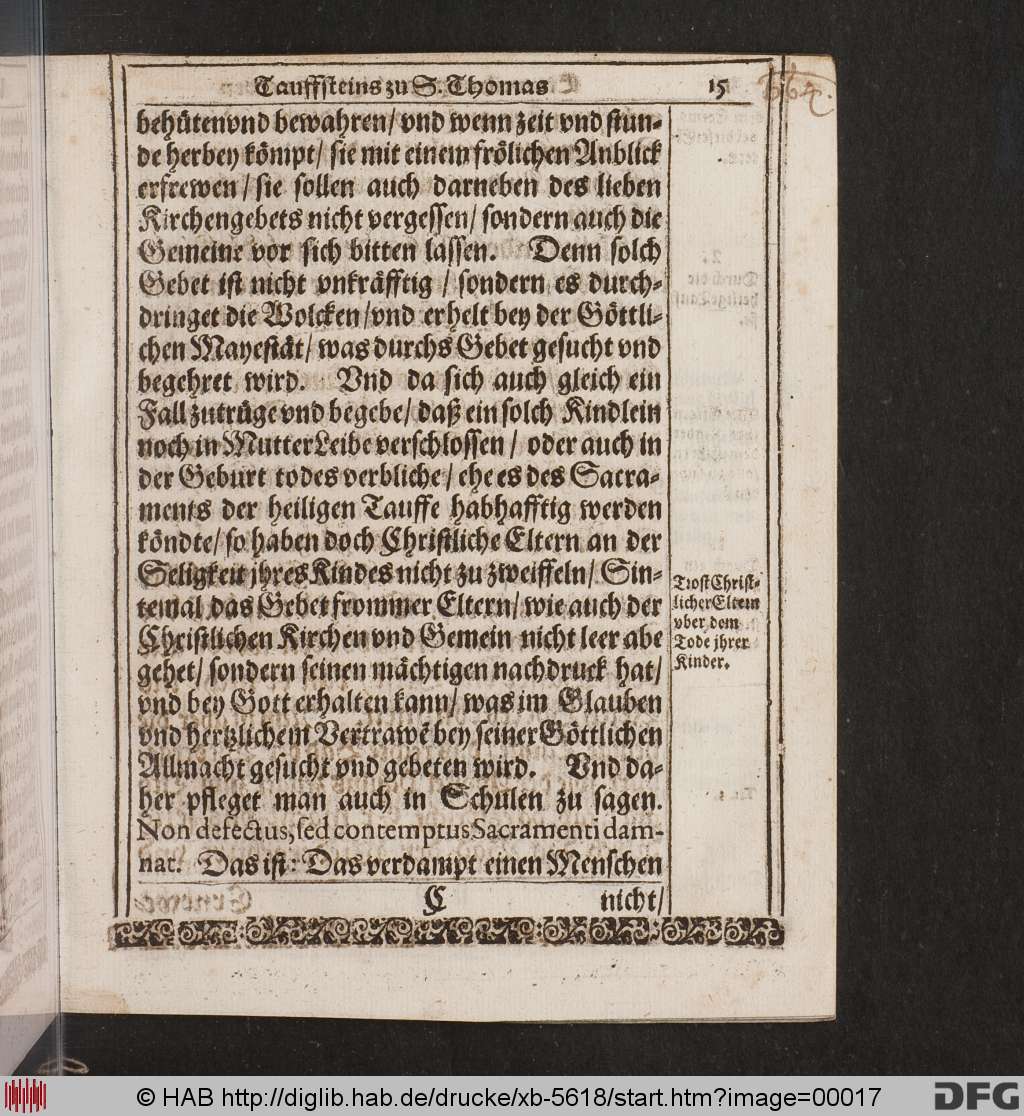 Tauffsteins zu S. Thomas 15
behüten vnd bewahren / vnd wenn zeit vnd stun-
de herbey kömpt / sie mit einem frölichen Anblick
erfrewen / sie sollen auch darneben des lieben
Kirchengebets nicht vergessen / sondern auch die
Gemeine vor sich bitten lassen. Denn solch
Gebet ist nicht vnkräfftig / sondern es durch-
dringet die Wolcken / vnd erhelt bey der Göttli-
chen Mayestät / was durchs Gebet gesucht vnd
begehret wird. Vnd da sich auch gleich ein
Fall zutrüge vnd begebe / daß ein solch Kindlein
noch in Mutter Leibe verschlossen / oder auch in
der Geburt todes verbliche / ehe es des Sacra-
ments der heiligen Tauffe habhafftig werden
köndte / so haben doch Christliche Eltern an der
Seligkeit jhres Kindes nicht zu zweiffeln / Sin-
temal das Gebet frommer Eltern / wie auch der
Christlichen Kirchen vnd Gemein nicht leer abe
gehet / sondern seinen mächtigen nachdruck hat /
vnd bey Gott erhalten kann / was im Glauben
vnd hertzlichem Vertrawẽ bey seiner Göttlichen
Allmacht gesucht vnd gebeten wird. Vnd da-
her pfleget man auch in Schulen zu sagen.
Non defectus, sed contemptus Sacramenti dam-
nat. Das ist: Das verdampt einen Menschen
C nicht /
Trost Christ-
licher Eltern
vber dem
Tode jhrer
Kinder.
© HAB http://diglib.hab.de/drucke/xb-5618/start.htm?image=00017
DFG